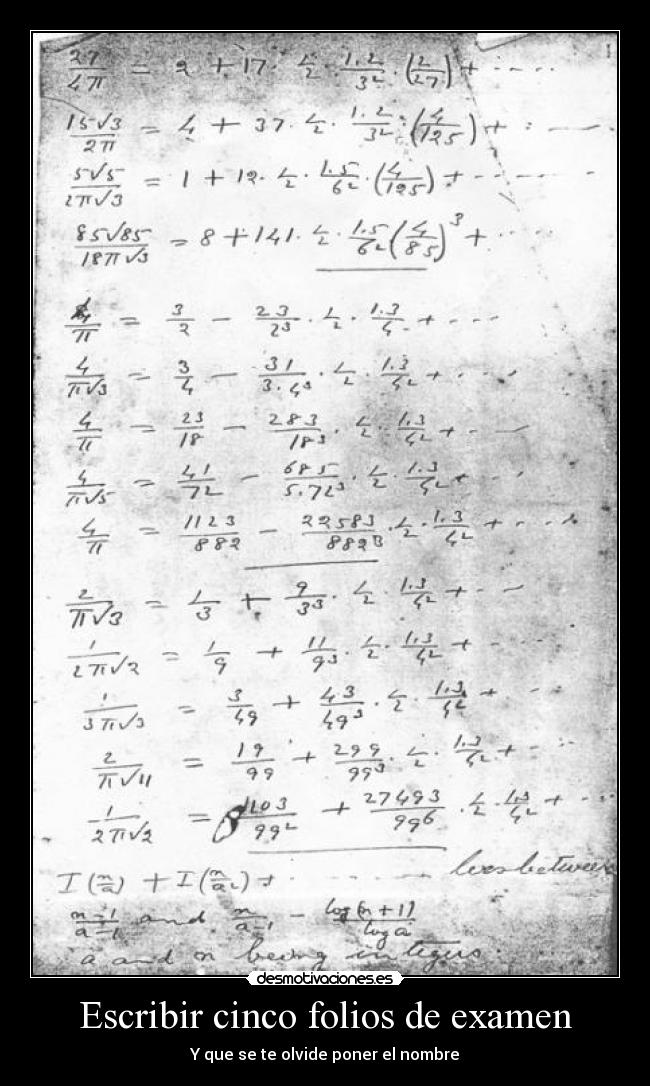 27/4π = 2 + 17 · 1/2 · 1.2/3² · (2/27) + ----
15√3/2π = 4 + 37 · 1/2 · 1.2/3² · (4/125) + ----
5√5/2π√3 = 1 + 12 · 1/2 · 1.5/6² · (4/125) + ----
85√85/18π√3 = 8 + 141 · 1/2 · 1.5/6² (4/85)³ + ----
4/π = 3/2 - 23/2³ · 1/2 · 1.3/4² + ---
4/π√3 = 3/4 - 31/3.4³ · 1/2 · 1.3/4² + ---
4/π = 23/18 - 283/18³ · 1/2 · 1.3/4² + ---
4/π√5 = 41/72 - 685/5.72³ · 1/2 · 1.3/4² + ---
4/π = 1123/882 - 22583/882³ · 1/2 · 1.3/4² + ---
2/π√3 = 1/3 + 9/3³ · 1/2 · 1.3/4² + ---
1/2π√2 = 1/9 + 11/9³ · 1/2 · 1.3/4² + ---
1/3π√3 = 3/49 + 43/49³ · 1/2 · 1.3/4² + ---
2/π√11 = 19/99 + 299/99³ · 1/2 · 1.3/4² + ---
1/2π√2 = 1103/99² + 27493/99⁶ · 1/2 · 1.3/4² + ---
I(n/a) + I(n/a²) + ------ lies between
n-1/a-1 and n/a-1 - log(n+1)/log a
a and n being integers.
desmotivaciones.es
Escribir cinco folios de examen
Y que se te olvide poner el nombre